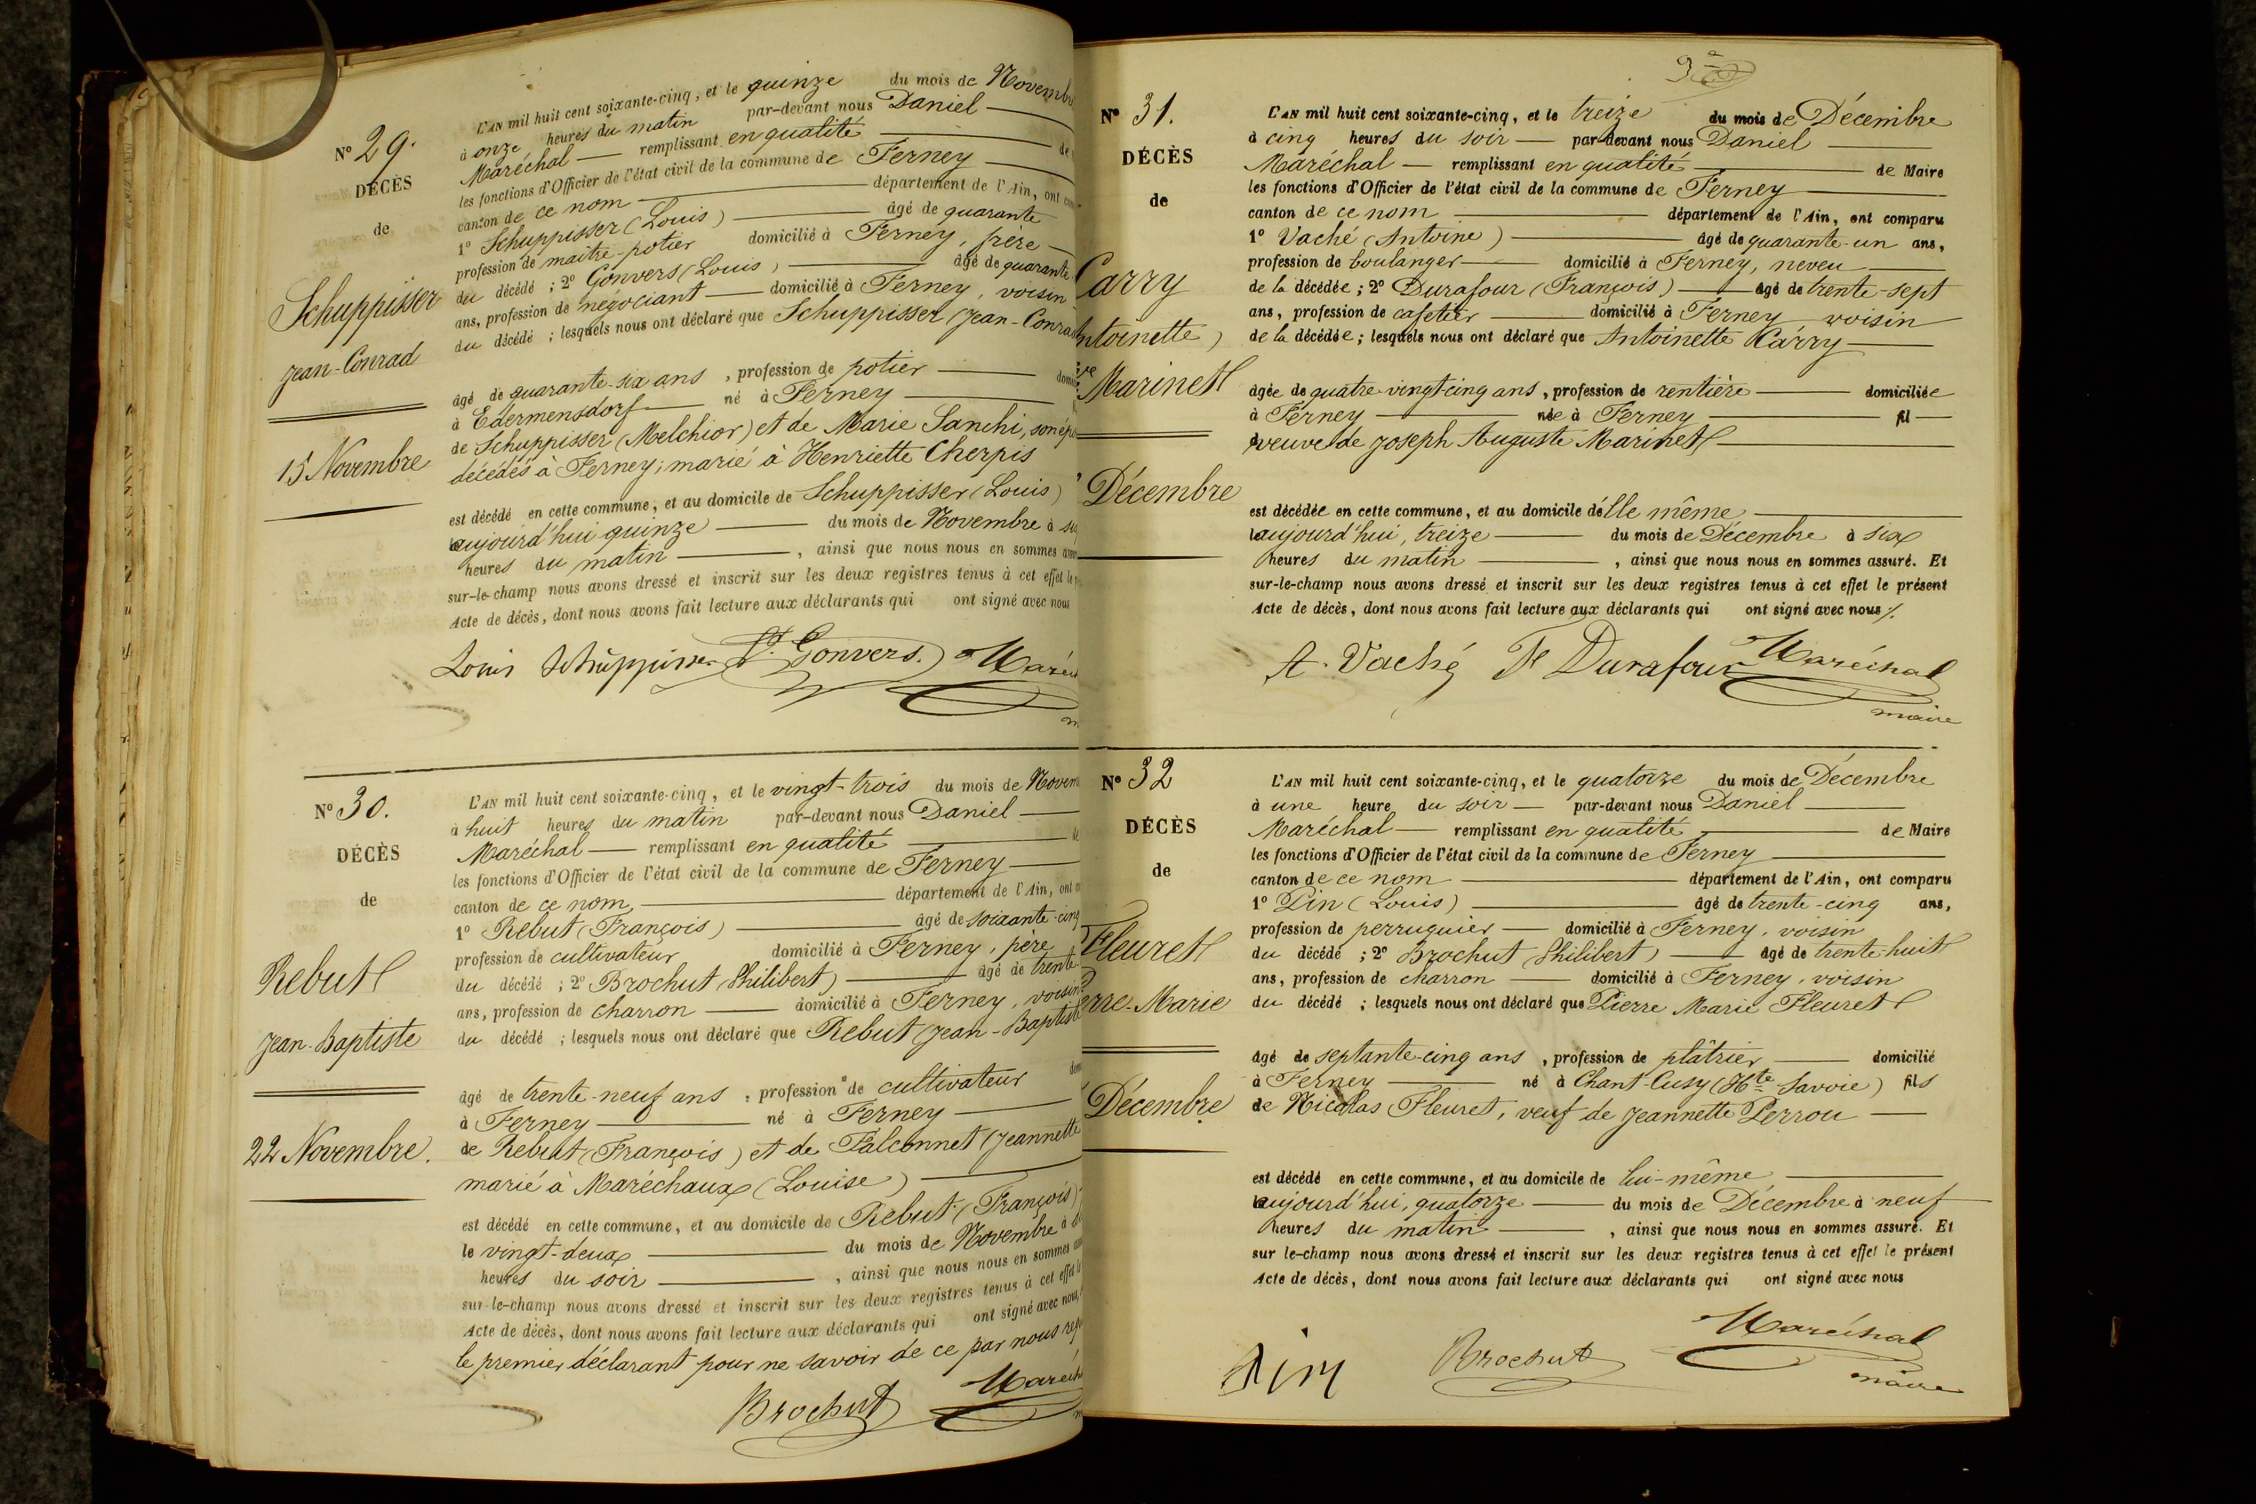 N° 29.
DÉCÈS
de
Schuppisser
Jean-Conrad
15 Novembre
L'AN mil huit cent soixante-cinq, et le quinze du mois de Novembre
à onze heures du matin par-devant nous Daniel
Maréchal remplissant en qualité de
les fonctions d'Officier de l'état civil de la commune de Ferney
canton de ce nom département de l'Ain, ont
1° Schuppisser (Louis) âgé de quarante
profession de maître-potier domicilié à Ferney, frère
du décédé ; 2° Gonvers (Louis) âgé de quarante
ans, profession de négociant domicilié à Ferney, voisin
du décédé ; lesquels nous ont déclaré que Schuppisser (Jean-Conrad
âgé de quarante-six ans, profession de potier
à Edermensdorf né à Ferney
de Schuppisser (Melchior) et de Marie Sanchi, son
décédés à Ferney; marié à Henriette Cherpis
est décédé en cette commune, et au domicile de Schuppisser (Louis)
aujourd'hui quinze du mois de Novembre à
heures du matin, ainsi que nous nous en sommes
sur-le-champ nous avons dressé et inscrit sur les deux registres tenus à cet effet le
Acte de décès, dont nous avons fait lecture aux déclarants qui ont signé avec nous
Louis Schuppisser Gonvers.
N° 30.
DÉCÈS
de
Rebut
Jean-Baptiste
22 Novembre.
L'AN mil huit cent soixante-cinq, et le vingt-trois du mois de
à huit heures du matin par-devant nous Daniel
Maréchal remplissant en qualité
les fonctions d'Officier de l'état civil de la commune de Ferney
canton de ce nom, département de l'Ain, ont
1° Rebut (François) âgé de soixante-cinq
profession de cultivateur domicilié à Ferney, père
du décédé ; 2° Brochut (Philibert) âgé de trente
ans, profession de charron domicilié à Ferney, voisin
du décédé ; lesquels nous ont déclaré que Rebut (Jean-Baptiste
âgé de trente-neuf ans, profession de cultivateur
à Ferney né à Ferney
de Rebut (François) et de Falconnet (Jeannette
marié à Maréchaux (Louise)
est décédé en cette commune, et au domicile de Rebut (François)
le vingt-deux du mois de Novembre à
heures du soir, ainsi que nous nous en sommes
sur-le-champ nous avons dressé et inscrit sur les deux registres tenus à cet effet
Acte de décès, dont nous avons fait lecture aux déclarants qui ont signé avec nous,
le premier déclarant pour ne savoir de ce par nous
Brochut
N° 31.
DÉCÈS
de
Carry
ntoinette)
ve Marinet
Décembre
L'AN mil huit cent soixante-cinq, et le treize du mois de Décembre
à cinq heures du soir par-devant nous Daniel
Maréchal remplissant en qualité de Maire
les fonctions d'Officier de l'état civil de la commune de Ferney
canton de ce nom département de l'Ain, ont comparu
1° Vaché (Antoine) âgé de quarante-un ans,
profession de boulanger domicilié à Ferney, neveu
de la décédée ; 2° Durafour (François) âgé de trente-sept
ans, profession de cafetier domicilié à Ferney voisin
de la décédée ; lesquels nous ont déclaré que Antoinette Carry
âgée de quatre-vingt-cinq ans, profession de rentière domiciliée
à Ferney née à Ferney fil
veuve de Joseph Auguste Marinet
est décédée en cette commune, et au domicile d'elle même
aujourd'hui, treize du mois de Décembre à six
heures du matin, ainsi que nous nous en sommes assuré. Et
sur-le-champ nous avons dressé et inscrit sur les deux registres tenus à cet effet le présent
Acte de décès, dont nous avons fait lecture aux déclarants qui ont signé avec nous /.
A. Vaché F Durafour Maréchal
maire
N° 32
DÉCÈS
de
Fleuret
erre-Marie
Décembre
L'AN mil huit cent soixante-cinq, et le quatorze du mois de Décembre
à une heure du soir par-devant nous Daniel
Maréchal remplissant en qualité de Maire
les fonctions d'Officier de l'état civil de la commune de Ferney
canton de ce nom département de l'Ain, ont comparu
1° Pin (Louis) âgé de trente-cinq ans,
profession de perruquier domicilié à Ferney, voisin
du décédé ; 2° Brochut (Philibert) âgé de trente-huit
ans, profession de charron domicilié à Ferney, voisin
du décédé ; lesquels nous ont déclaré que Pierre Marie Fleuret
âgé de septante-cinq ans, profession de plâtrier domicilié
à Ferney né à Chant-Cusy (Hte Savoie) fils
de Nicolas Fleuret, veuf de Jeannette Perrou
est décédé en cette commune, et au domicile de lui-même
aujourd'hui, quatorze du mois de Décembre à neuf
heures du matin, ainsi que nous nous en sommes assuré. Et
sur le-champ nous avons dressé et inscrit sur les deux registres tenus à cet effet le présent
Acte de décès, dont nous avons fait lecture aux déclarants qui ont signé avec nous
Pin Brochut Maréchal
maire